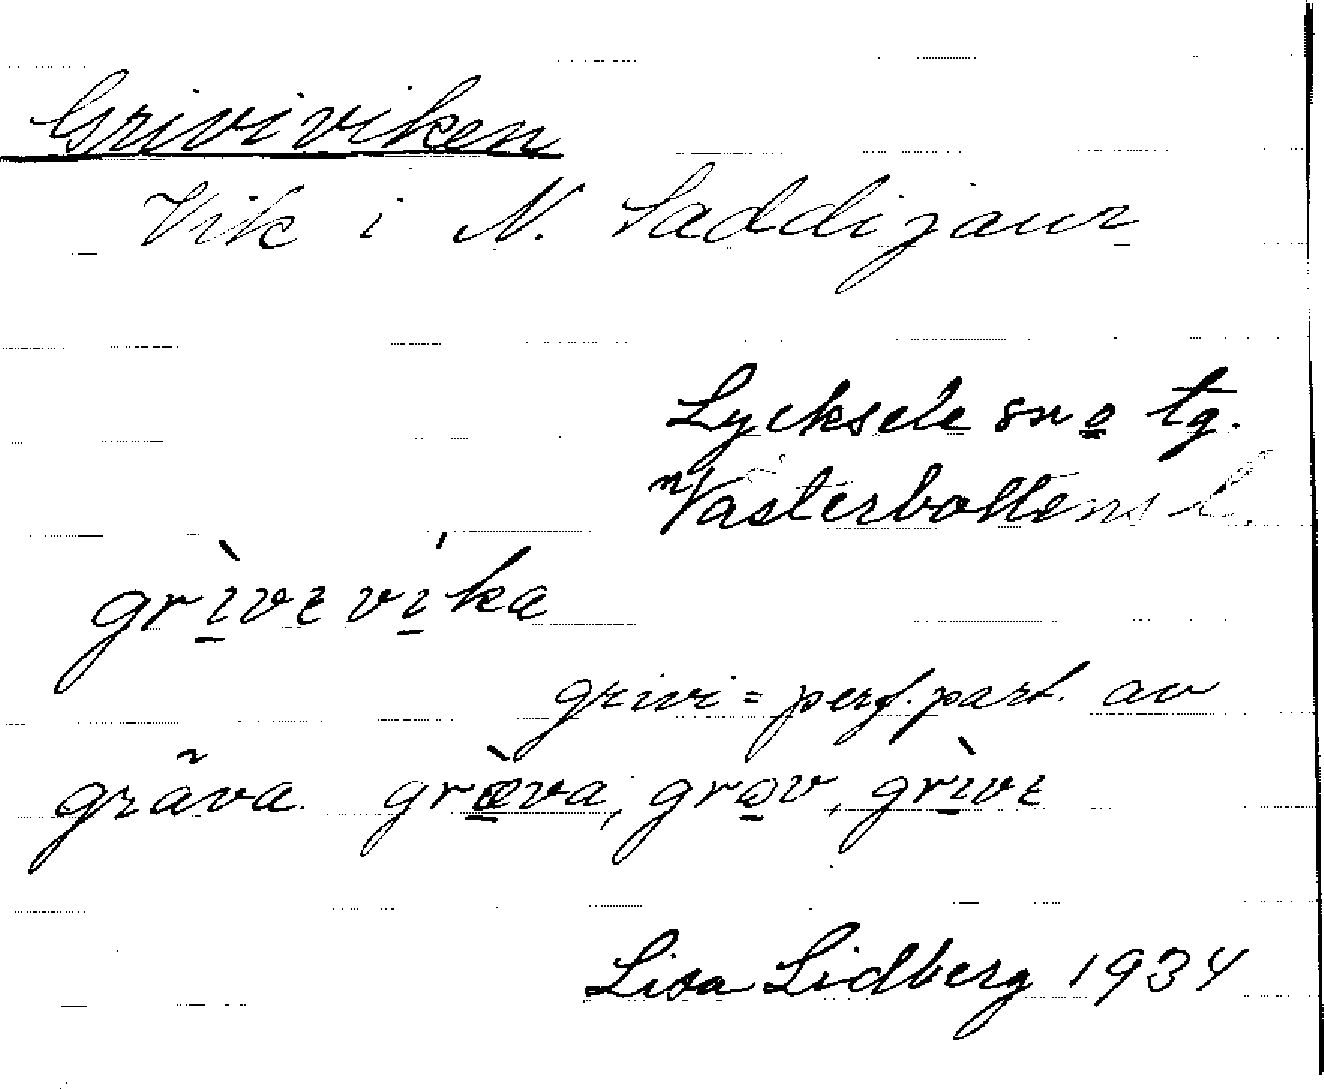 Griviviken
Vik i N. Saddijaur
Lycksele sn o tg.
Västerbottens l.
grìvɩ víka
grivi = perf. part. av
gräva. græ̀va, grov, grìvɩ
Lisa Lidberg 1934